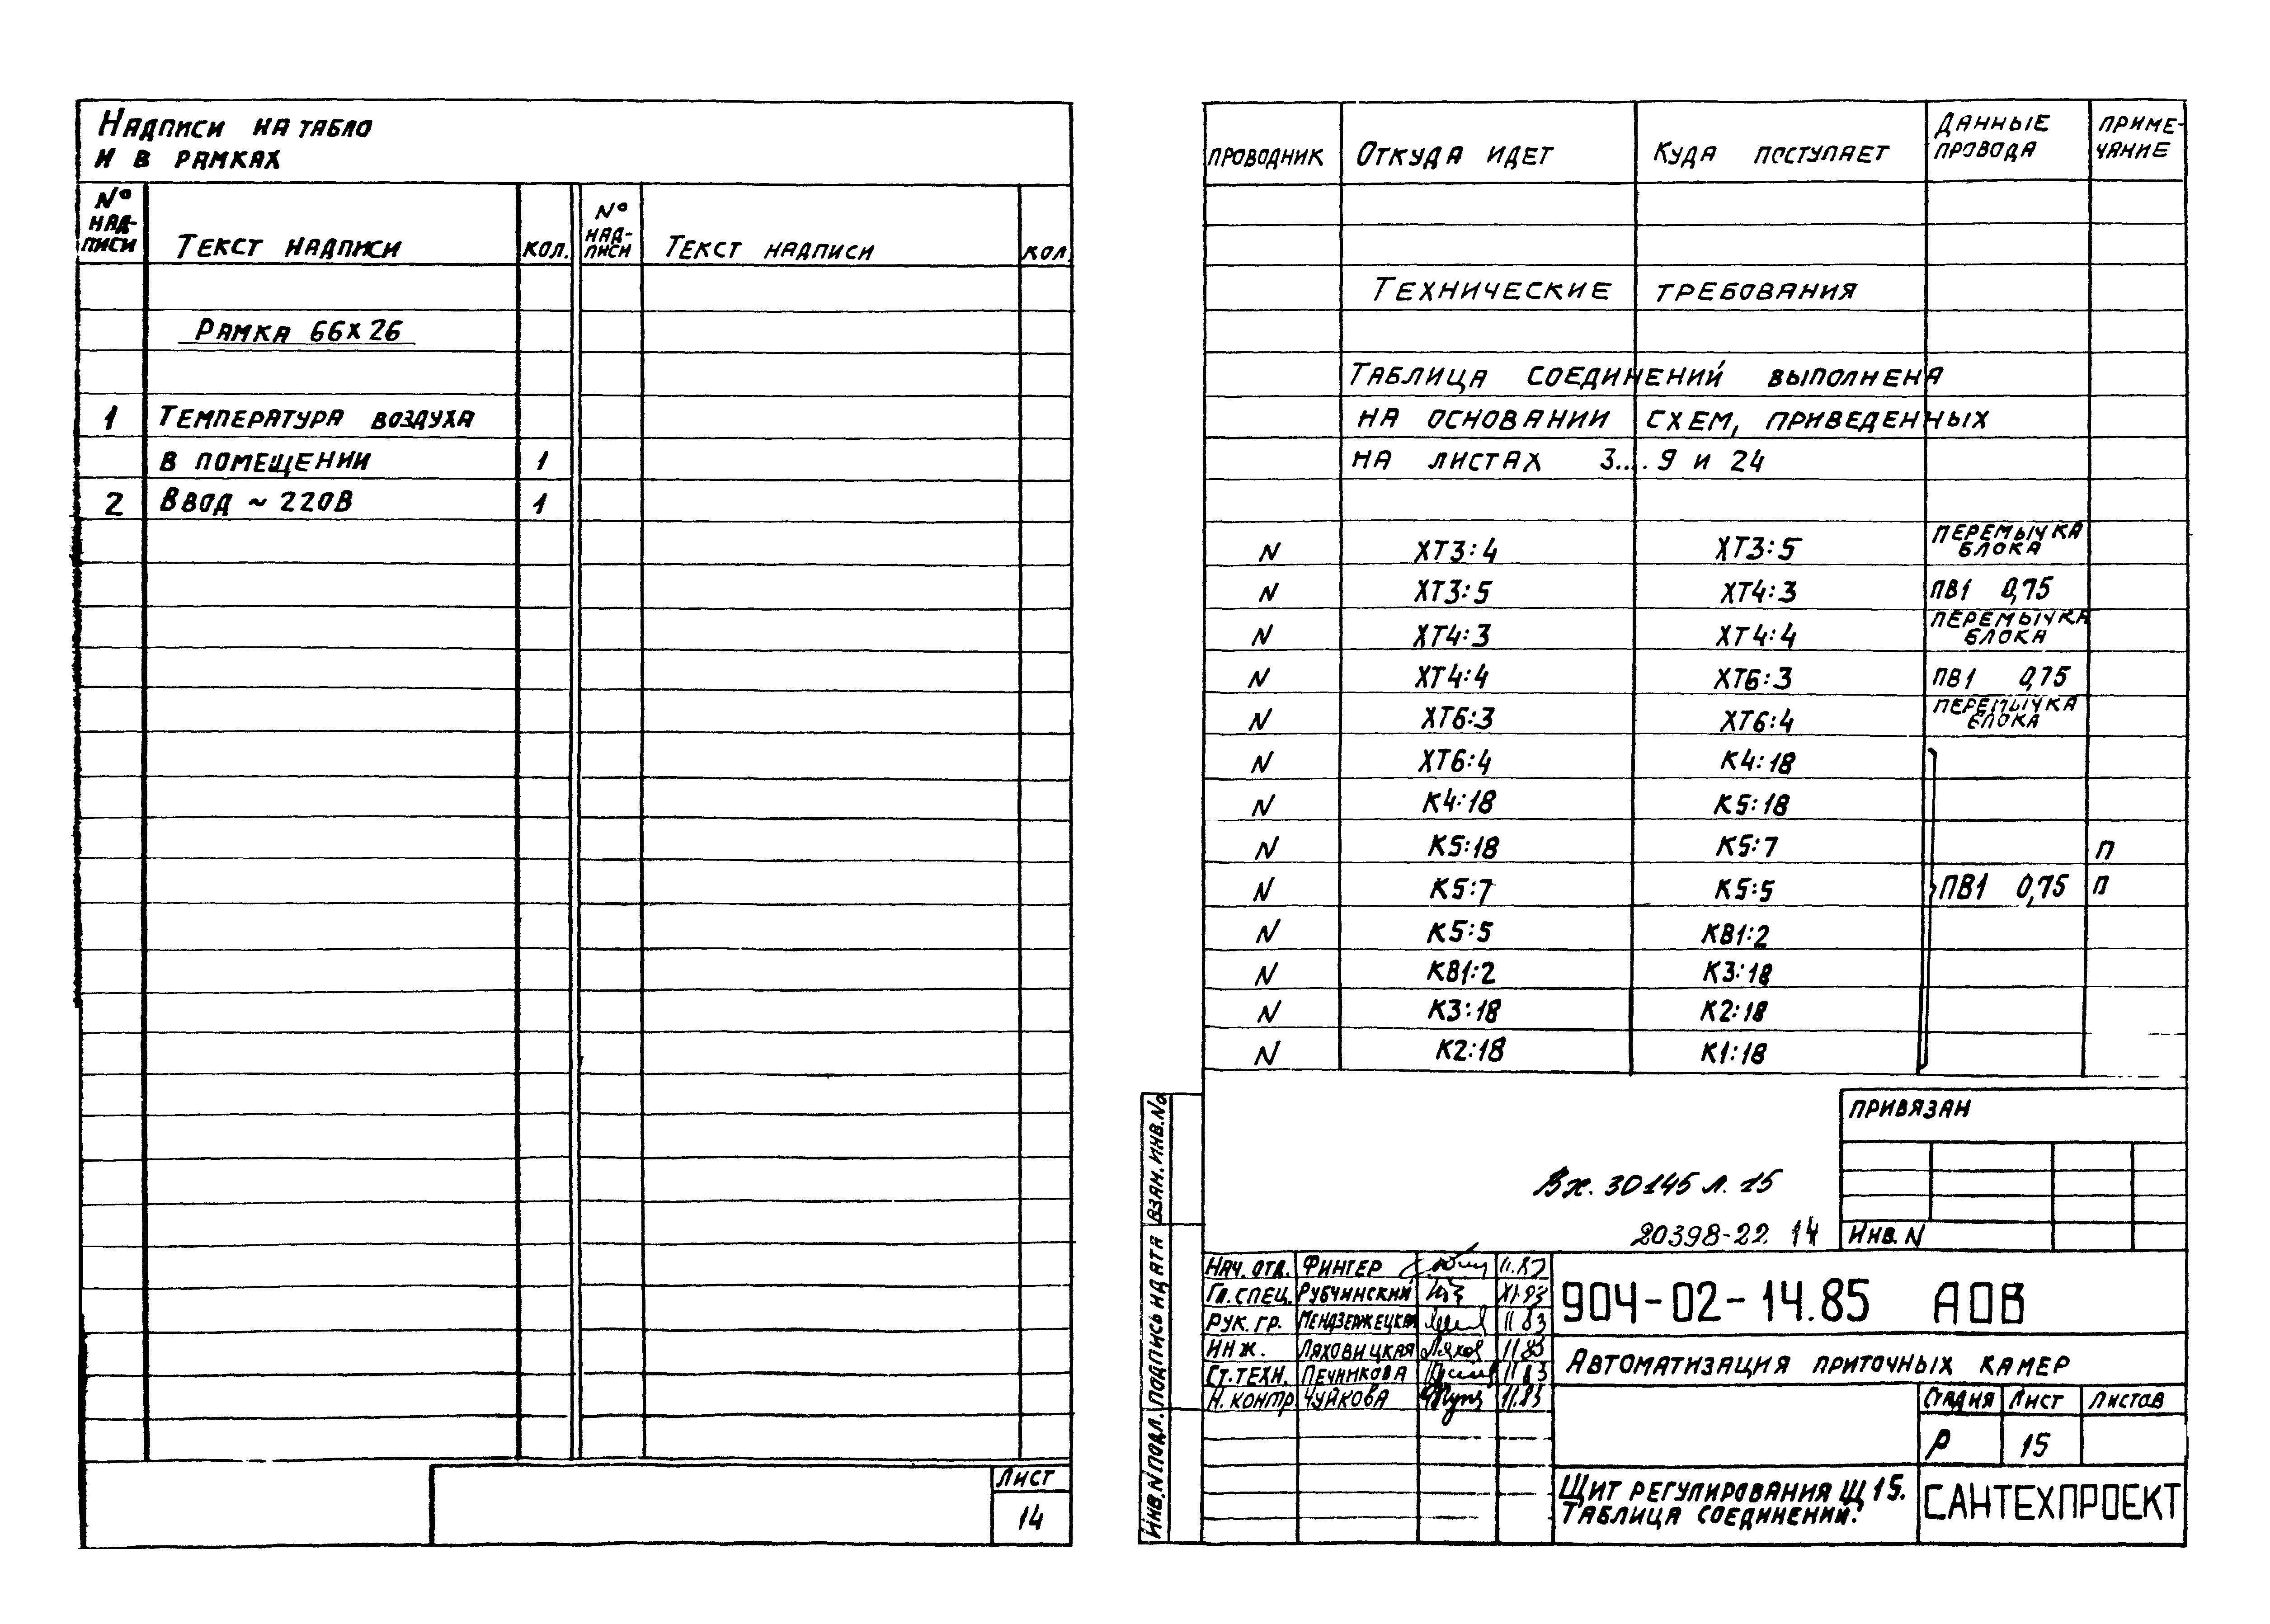 Надписи на табло
и в рамках
№ надписи Текст надписи кол. № надписи Текст надписи кол.
Рамка 66х26
1 Температура воздуха
в помещении 1
2 Ввод ~ 220В 1
Лист
14
проводник Откуда идет Куда поступает Данные провода Приме-чание
Технические требования
Таблица соединений выполнена
на основании схем, приведенных
на листах 3....9 и 24
N ХТ3:4 ХТ3:5 перемычка блока
N ХТ3:5 ХТ4:3 ПВ1 0,75
N ХТ4:3 ХТ4:4 перемычка блока
N ХТ4:4 ХТ6:3 ПВ1 0,75
N ХТ6:3 ХТ6:4 перемычка блока
N ХТ6:4 К4:18
N К4:18 К5:18
N К5:18 К5:7 П
N К5:7 К5:5 ПВ1 0,75 П
N К5:5 КВ1:2
N КВ1:2 К3:18
N К3:18 К2:18
N К2:18 К1:18
Привязан
Инв. N
Вх. 30145 л. 15
20398-22 14
Взам. инв. №
Подпись и дата
Инв. N подл.
Нач. отд. Фингер
Гл. спец. Рубчинский
Рук. гр. Мендзержецкая 11 83
Инж. Ляховицкая 11 83
Ст. техн. Печникова 11 83
Н. контр Чудкова 11.83
904-02-14.85 АОВ
Автоматизация приточных камер
Стадия Лист Листов
Р 15
Щит регулирования Щ15.
Таблица соединений.
САНТЕХПРОЕКТ